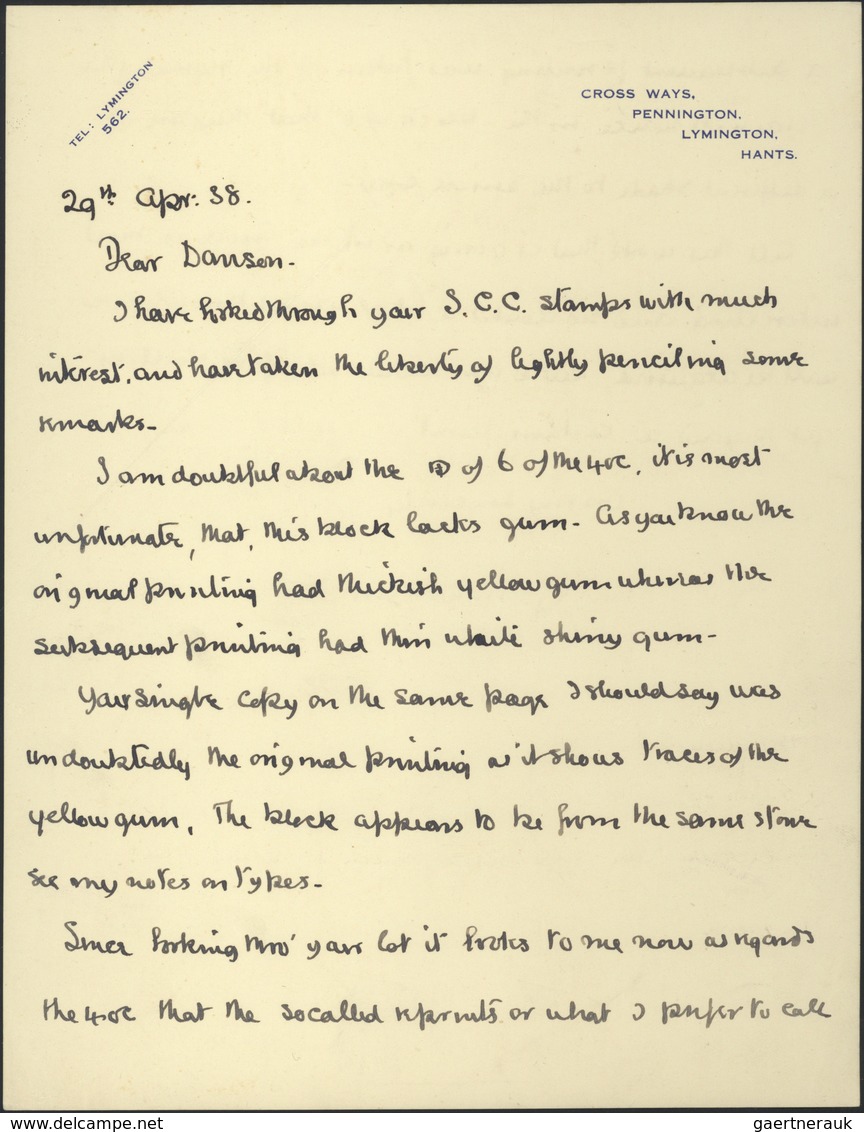 TEL: LYMINGTON
562.
CROSS WAYS,
PENNINGTON,
LYMINGTON,
HANTS.
29th Apr: 38.
Dear Danson-
I have looked through your S.C.C. stamps with much
interest, and have taken the liberty of lightly pencilling some
remarks-
I am doubtful about the of 6 of the 40c, it is most
unfortunate, that, this block lacks gum- As you know the
original printing had thickish yellow gum whereas the
subsequent printing had thin white shiny gum-
Your single copy on the same page I should say was
undoubtedly the original printing as it shows traces of the
yellow gum, The block appears to be from the same stone
see my notes on types-
Since looking thro' your lot it looks to me now as regards
the 40c that the so called reprints or what I prefer to call
delcampe.net
gaertnerauk